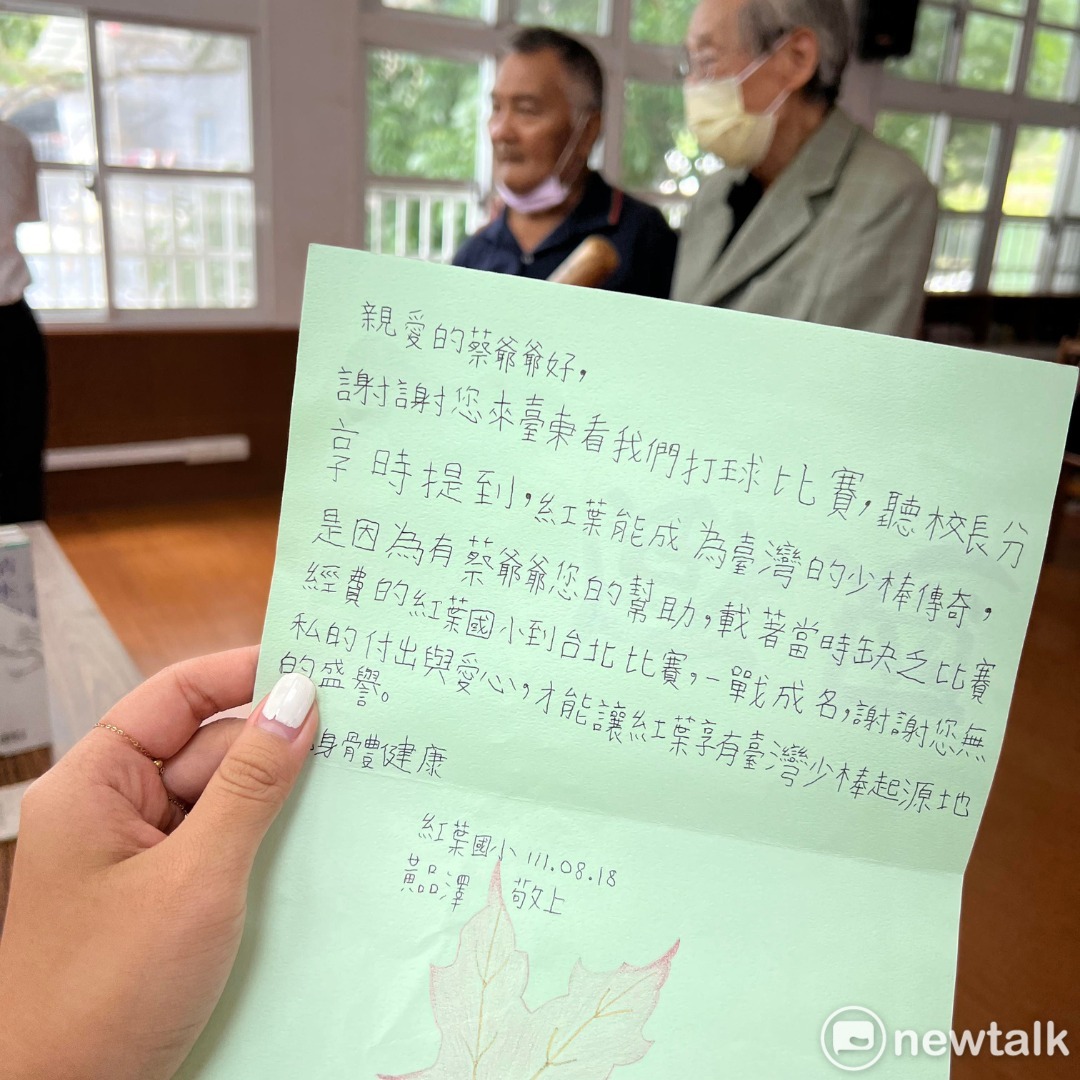 親愛的蔡爺爺好,
謝謝您來臺東看我們打球比賽,聽校長分
享時提到,紅葉能成為臺灣的少棒傳奇,
是因為有蔡爺爺您的幫助,載著當時缺乏比賽
經費的紅葉國小到台北比賽,一戰成名,謝謝您無
私的付出與愛心,才能讓紅葉享有臺灣少棒起源地
的盛譽。
身體健康
紅葉國小 111.08.18
黃品澤 敬上
newtalk